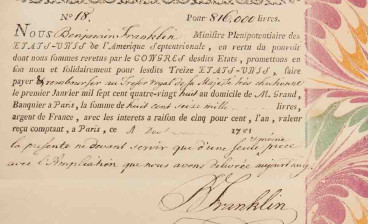 No 18. Pour 816,000 livres.
NOUS Benjamin Franklin Ministre Plenipotentiaire des
ETATS-UNIS de l'Amérique Septentrionale, en vertu du pouvoir
dont nous sommes revetus par le CONGRÈS desdits Etats, promettons en
son nom et solidairement pour lesdits Treize ETATS-UNIS, faire
payer & rembourser au Trésor Royal de Sa Majesté très chrétienne
le premier Janvier mil sept cent quatre-vingt huit au domicile de M. Grand,
Banquier à Paris, la somme de huit cent seize mille livres,
argent de France, avec les interets a raison de cinq pour cent, l'an, valeur
reçu comptant, a Paris, ce
la presente ne devant servir que d'une seule piece
avec l'Ampliation que nous avons delivrée aujourd'huy
B Franklin